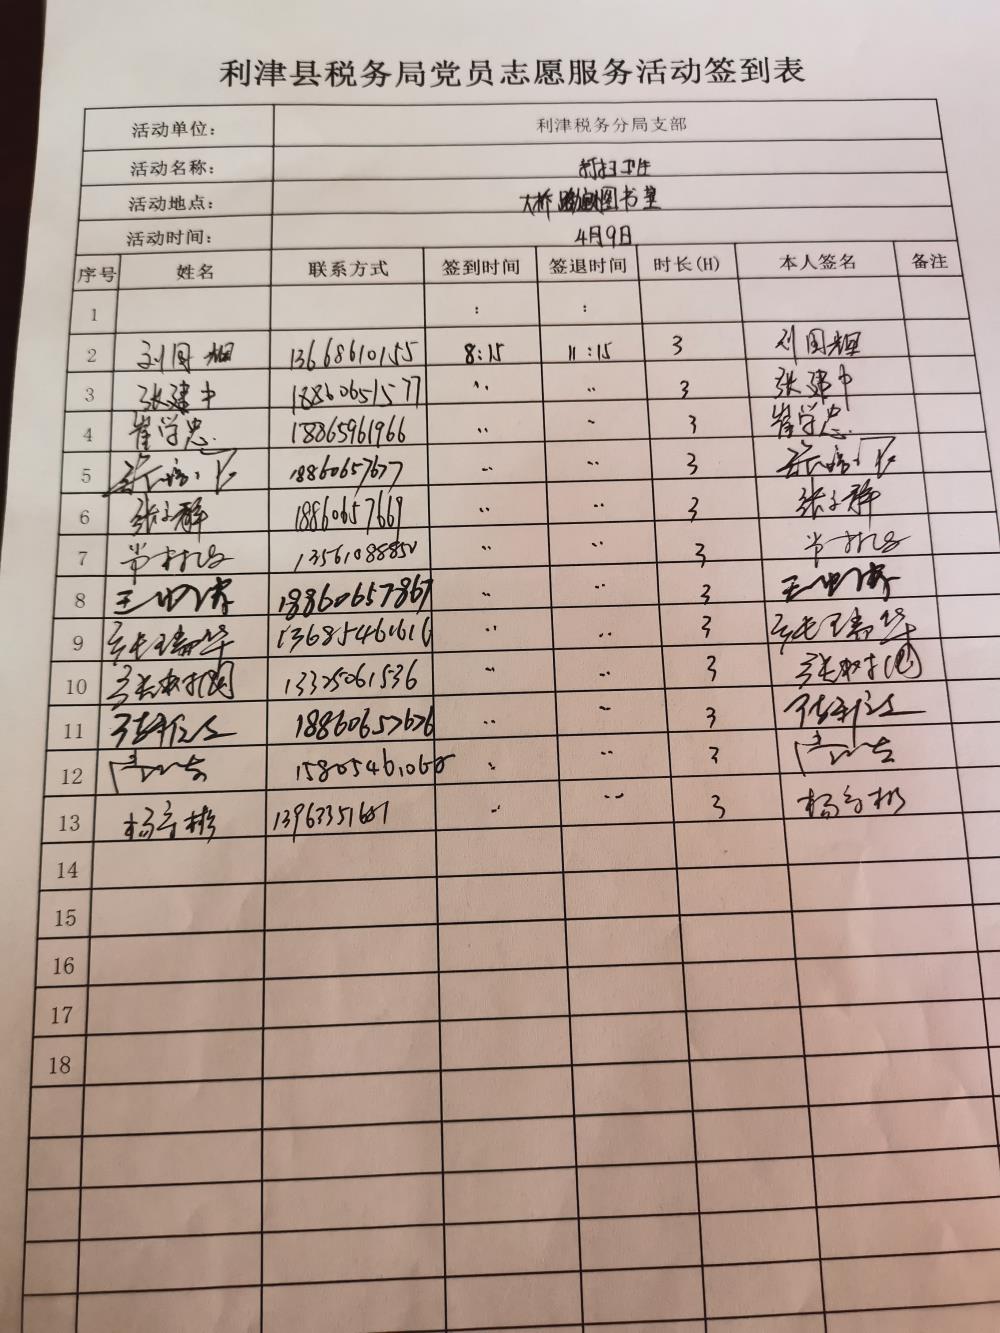 利津县税务局党员志愿服务活动签到表
活动单位： 利津税务分局支部
活动名称： 打扫卫生
活动地点： 大桥 图书室
活动时间： 4月9日
序号 姓名 联系方式 签到时间 签退时间 时长(H) 本人签名 备注
1 : :
2 刘国辉 13668610155 8:15 11:15 3 刘国辉
3 张建中 18860651577 〃 〃 3 张建中
4 崔学忠 18865961966 〃 〃 3 崔学忠
5 18860657677 〃 〃 3
6 张子静 18860657669 〃 〃 3 张子静
7 13561088850 〃 〃 3
8 18860657867 〃 〃 3
9 张瑞华 13685461616 〃 〃 3 张瑞华
10 张树国 13325061536 〃 〃 3 张树国
11 18860657676 〃 〃 3
12 15805461060 〃 〃 3
13 杨彬 13963351681 〃 〃 3 杨彬
14
15
16
17
18